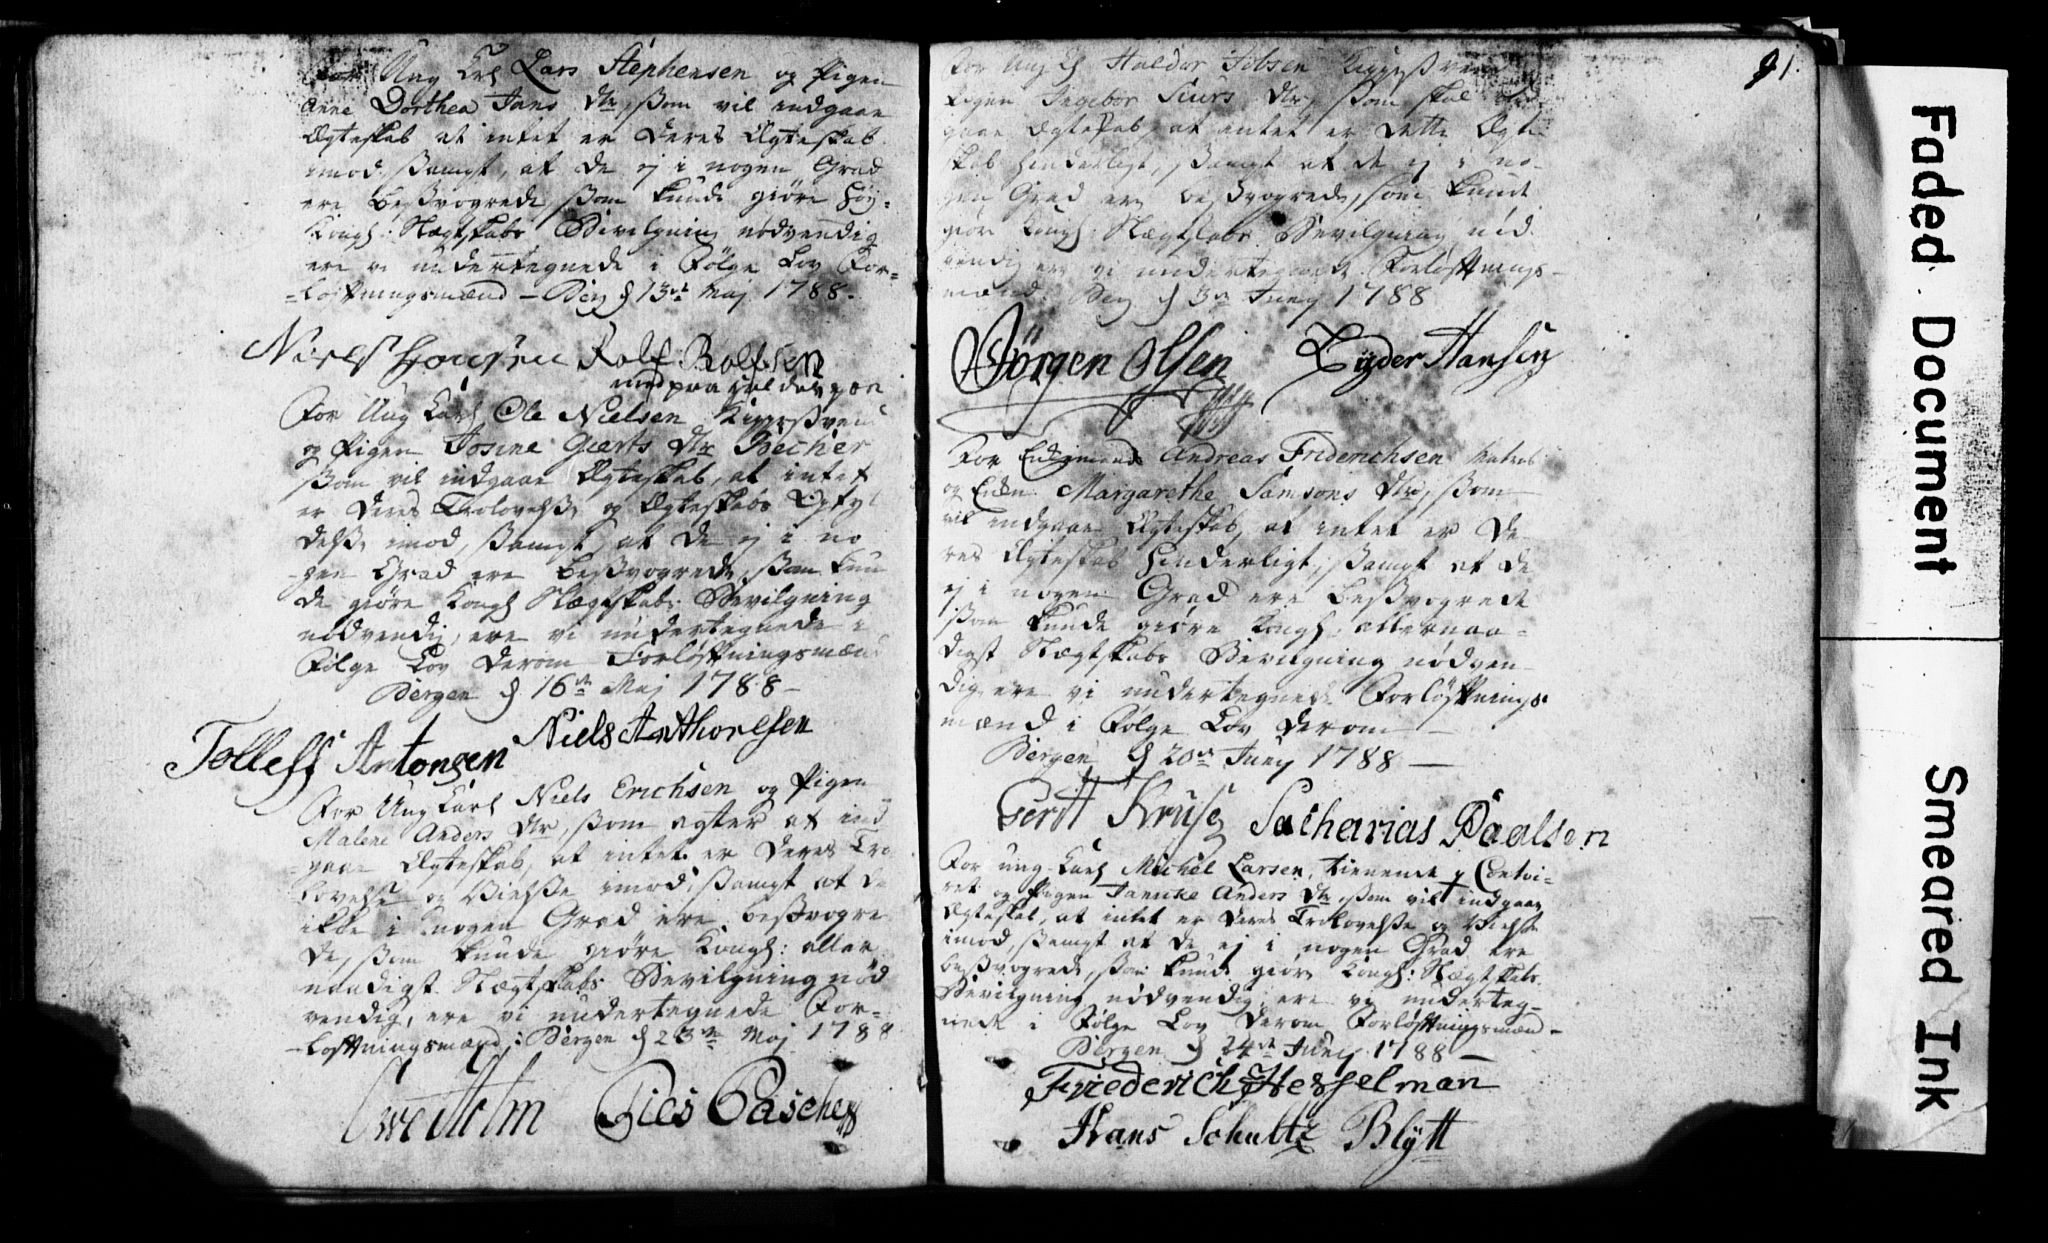 For Ung Krl Lars Stephensen og Pigen
Anne Dorthea Jans Dtr, ßom vil indgaae
Ægteskab at intet er Deres Ægteskab
imod, ßampt, at de ej i nogen Grad
ere beßvogrede, ßom kunde giøre høy-
Kongl: Slægtskabs Bevilgning nødvendig
ere vi undertegnede i Følge Lov For-
-løftningsmænd - Berg d 13de Maj 1788.
Niels Hansen Rolf Rolfsen
med paaholden pæn
For Ung Karl Ole Nielsen
og Pigen Josine Geerts Dtr Becher
ßom vil indgaae Ægteskab, at intet
er Deres Trolovelße og Ægteskabs
imod, ßampt at de ej i no
gen Grad ere beßvogrede, ßom kun
de giøre Kongl Slægtskabs Bevilgning
nødvendig, ere vi undertegnede i
Følge Lov derom Forløftningsmænd
Bergen d 16de Maj 1788-
Tolleff Antonsen Niels Anthonesen
For Ung Karl Niels Erichsen og Pigen
Malene Anders Dtr, ßom agter at ind
gaae Ægteskab, at intet er Deres Tro
lovelse og Vielße imod, ßampt at de
ikke i nogen Grad ere beßvogre
de, ßom kunde giøre Kongl: aller
naadigst Slægtskabs Bevilgning nød
vendig, ere vi undertegnede For-
-løftningsmænd; Bergen d 23de Maj 1788
Holm Gies Paschen
91.
For Ung K Haldor Jobsen
Pigen Ingebor Siurs Dtr, ßom skal ind
gaae Ægteskab, at intet er dette Ægte
skab hinderligt, ßampt at de ej i no-
gen Grad ere beßvogrede, som kunde
giøre Kongl: Slægtskabs Bevilgning nød
vendig ere vi undertegnede Forløftnings-
mænd. Berg d 3de Juny 1788
Jörgen Olsen Lyder Hansen
For Enkemand Andreas Friderichsen Matros
og Enken Margarethe Samsons Dtr, ßom
vil indgaae Ægteskab, at intet er De
res Ægteskab hinderligt, ßampt at de
ej i nogen Grad ere beßvogrede
ßom kunde giøre Kongl. allernaa-
digst Slægtskabs Bevilgning nødven
dig, ere vi undertegnede Forløftnings-
mænd i Følge Lov derom -
Bergen d 20de Juny 1788 -
Gerdt Kruse Sacharias Paalsen
For ung Karl Michel Larsen, tienende p Contoi-
ret og Pigen Jannike Anders Dtr, ßom vil indgaae
Ægteskab, at intet er Deres Trolovelße og Vielße
imod, ßampt at de ej i nogen Grad ere
beßvogrede, ßom kunde giøre Kongl: Slægtskabs
Bevilgning nødvendig; ere vi underteg-
nede i Følge Lov derom Forløftningsmænd -
Bergen d 24de Juny 1788 -
Friederich Hesselman
Hans Schultz Blÿtt
Faded Document
Smeared Ink